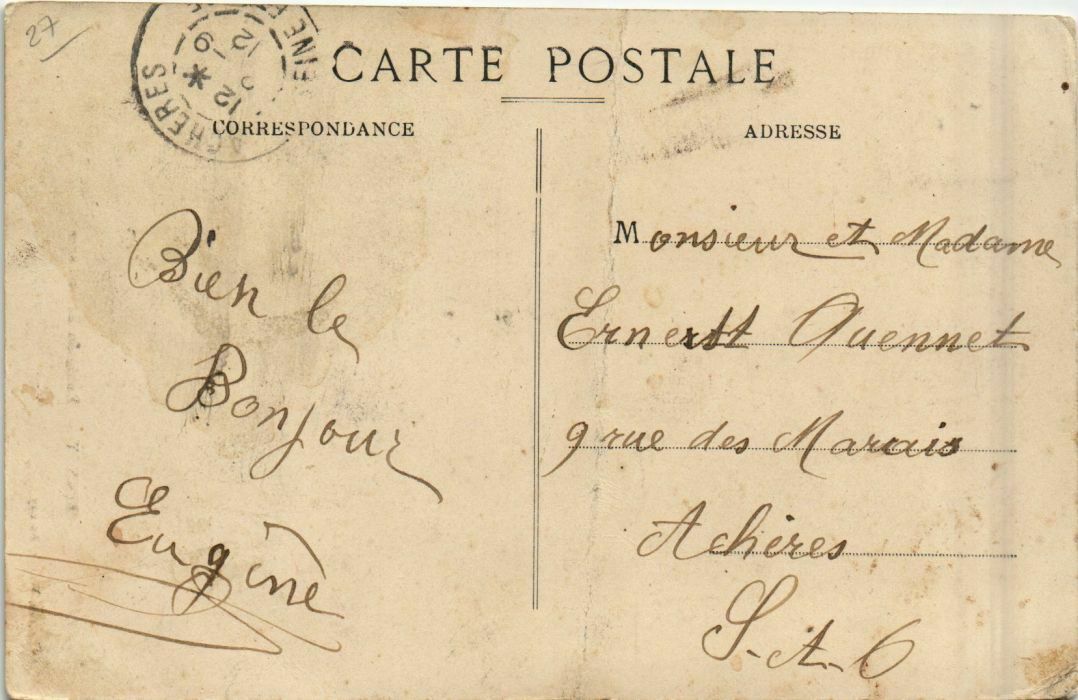 27
ACHERES
12 *
CARTE POSTALE
CORRESPONDANCE
Bien le
Bonjour
Eugène
ADRESSE
Monsieur et Madame
Ernestt Quennet
9 rue des Marais
Achères
S.-et-O